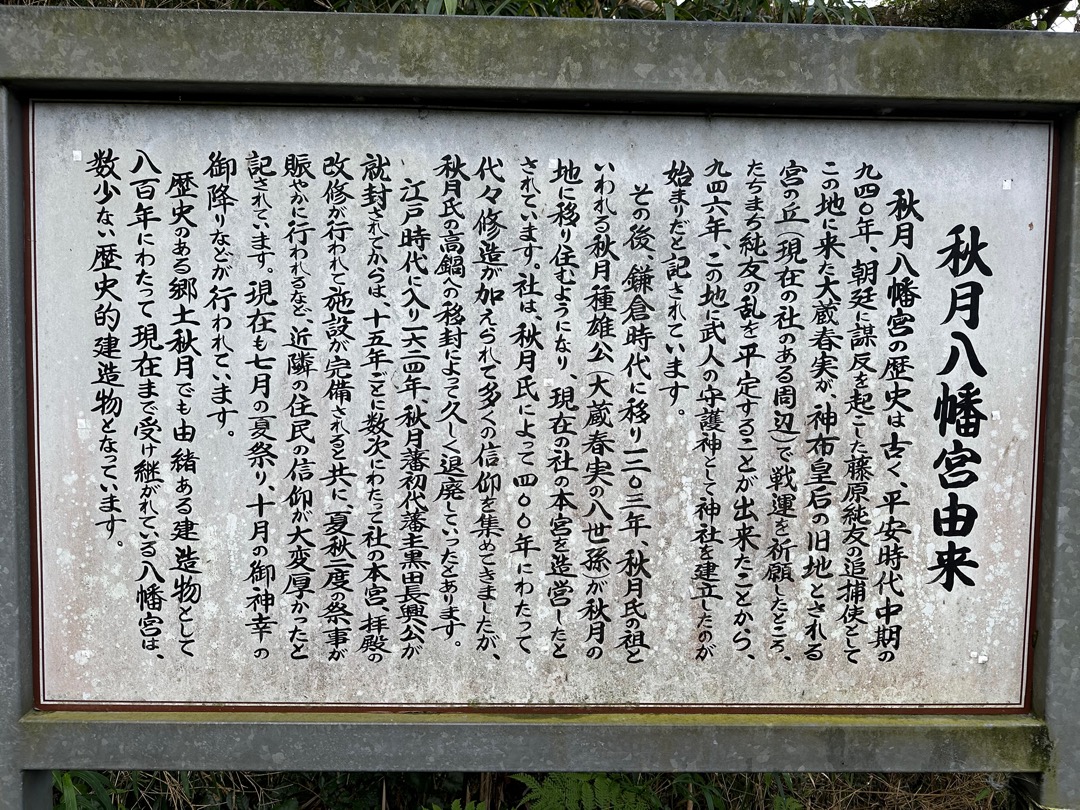 秋月八幡宮由来
秋月八幡宮の歴史は古く、平安時代中期の
九四〇年、朝廷に謀反を起こした藤原純友の追捕使として
この地に来た大蔵春実が、神布皇后の旧地とされる
宮の丘(現在の社のある周辺)で戦運を祈願したところ、
たちまち純友の乱を平定することが出来たことから、
九四六年、この地に武人の守護神として神社を建立したのが
始まりだと記されています。
その後、鎌倉時代に移り一二〇三年、秋月氏の祖と
いわれる秋月種雄公(大蔵春実の八世孫)が秋月の
地に移り住むようになり、現在の社の本宮を造営したと
されています。社は、秋月氏によって四〇〇年にわたって
代々修造が加えられて多くの信仰を集めてきましたが、
秋月氏の高鍋への移封によって久しく退廃していったとあります。
江戸時代に入り一六二四年、秋月藩初代藩主黒田長興公が
就封されてからは、十五年ごとに数次にわたって社の本宮、拝殿の
改修が行われて施設が完備されると共に、夏秋二度の祭事が
賑やかに行われるなど、近隣の住民の信仰が大変厚かったと
記されています。現在も七月の夏祭り、十月の御神幸の
御降りなどが行われています。
歴史のある郷土秋月でも由緒ある建造物として
八百年にわたって現在まで受け継がれている八幡宮は、
数少ない歴史的建造物となっています。